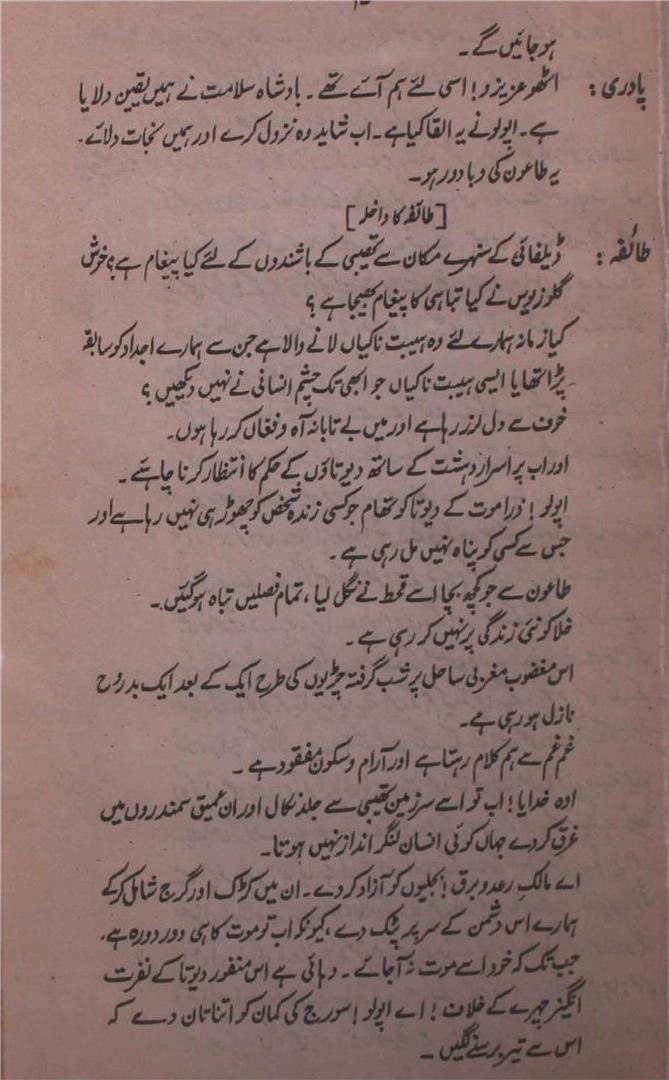 ہو جائیں گے۔
پادری: اٹھو عزیزو! اسی لئے ہم آئے تھے۔ بادشاہ سلامت نے ہمیں یقین دلایا
ہے۔ اپولو نے یہ القا کیا ہے۔ اب شاید وہ نزول کرے اور ہمیں نجات دلائے۔
یہ طاعون کی وبا دور ہو۔
[طائفہ کا داخلہ]
طائفہ: ڈیلفائی کے سنہرے مکان سے تھیبی کے باشندوں کے لئے کیا پیغام ہے؟ خرش
گلوز یوس نے کیا تباہی کا پیغام بھیجا ہے؟
کیا زمانہ ہمارے لئے وہ ہیبت ناکیاں لانے والا ہے جن سے ہمارے اجداد کو سابقہ
پڑا تھا یا ایسی ہیبت ناکیاں جو ابھی تک چشم انسانی نے نہیں دیکھیں؟
خوف سے دل لرز رہا ہے اور میں بے تابانہ آہ و فغاں کر رہا ہوں۔
اور اب پر اسرار دہشت کے ساتھ دیوتاؤں کے حکم کا انتظار کرنا چاہئیے۔
اپولو! ذرا موت کے دیوتا کو تھام جو کسی زندہ شخص کو چھوڑ ہی نہیں رہا ہے اور
جس سے کسی کو پناہ نہیں مل رہی ہے۔
طاعون سے جو کچھ بچا اسے قحط نے نگل لیا، تمام فصلیں تباہ ہو گئیں۔
خلا کو نئی زندگی پر نہیں کر رہی ہے۔
اس مغضوب مغربی ساحل پر شب گرفتہ چڑیوں کی طرح ایک کے بعد ایک بد روح
نازل ہو رہی ہے۔
غم غم سے ہم کلام رہتا ہے اور آرام و سکون مفقود ہے۔
اوہ خدایا! اب تو اسے سرزمین تھیبی سے جلد نکال اور ان عمیق سمندروں میں
غرق کر دے جہاں کوئی انسان لنگر انداز نہیں ہوتا۔
اے مالک رعد و برق! بجلیوں کو آزاد کر دے۔ ان میں کڑک اور گرج شامل کر کے
ہمارے اس دشمن کے سر پر پٹک دے، کیونکہ اب تو موت کا ہی دور دورہ ہے،
جب تک کہ خود اسے موت نہ آ جائے۔ دہائی ہے اس منفور دیوتا کے نفرت
انگیز چہرے کے خلاف! اے اپولو! سورج کی کمان کو اتنا تان دے کہ
اس سے تیر برسنے لگیں۔